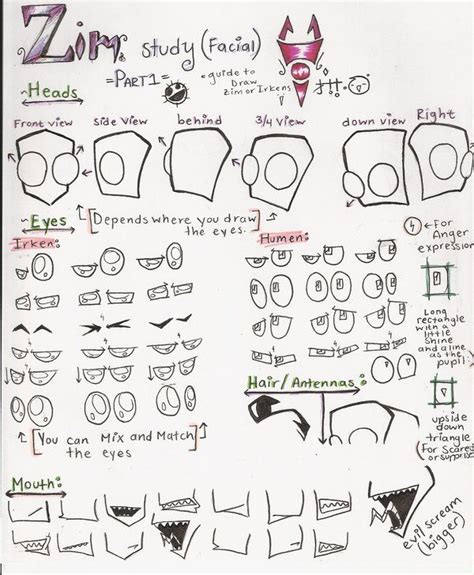 Zim study (Facial)
=PART 1=
•guide to
Draw
Zim or Irkens
~Heads
Front view
side view
behind
3/4 view
down view
Right
~Eyes
[Depends where you draw
the eyes.]
←For
Anger
expression
Irken:
Humen:
Long
rectangle
with a
little
shine
and a line
as the
pupil:
Hair/Antennas:
upside
down
triangle
(for scared
or surprise)
[You can Mix and Match
the eyes]
Mouth:
evil scream
(bigger)